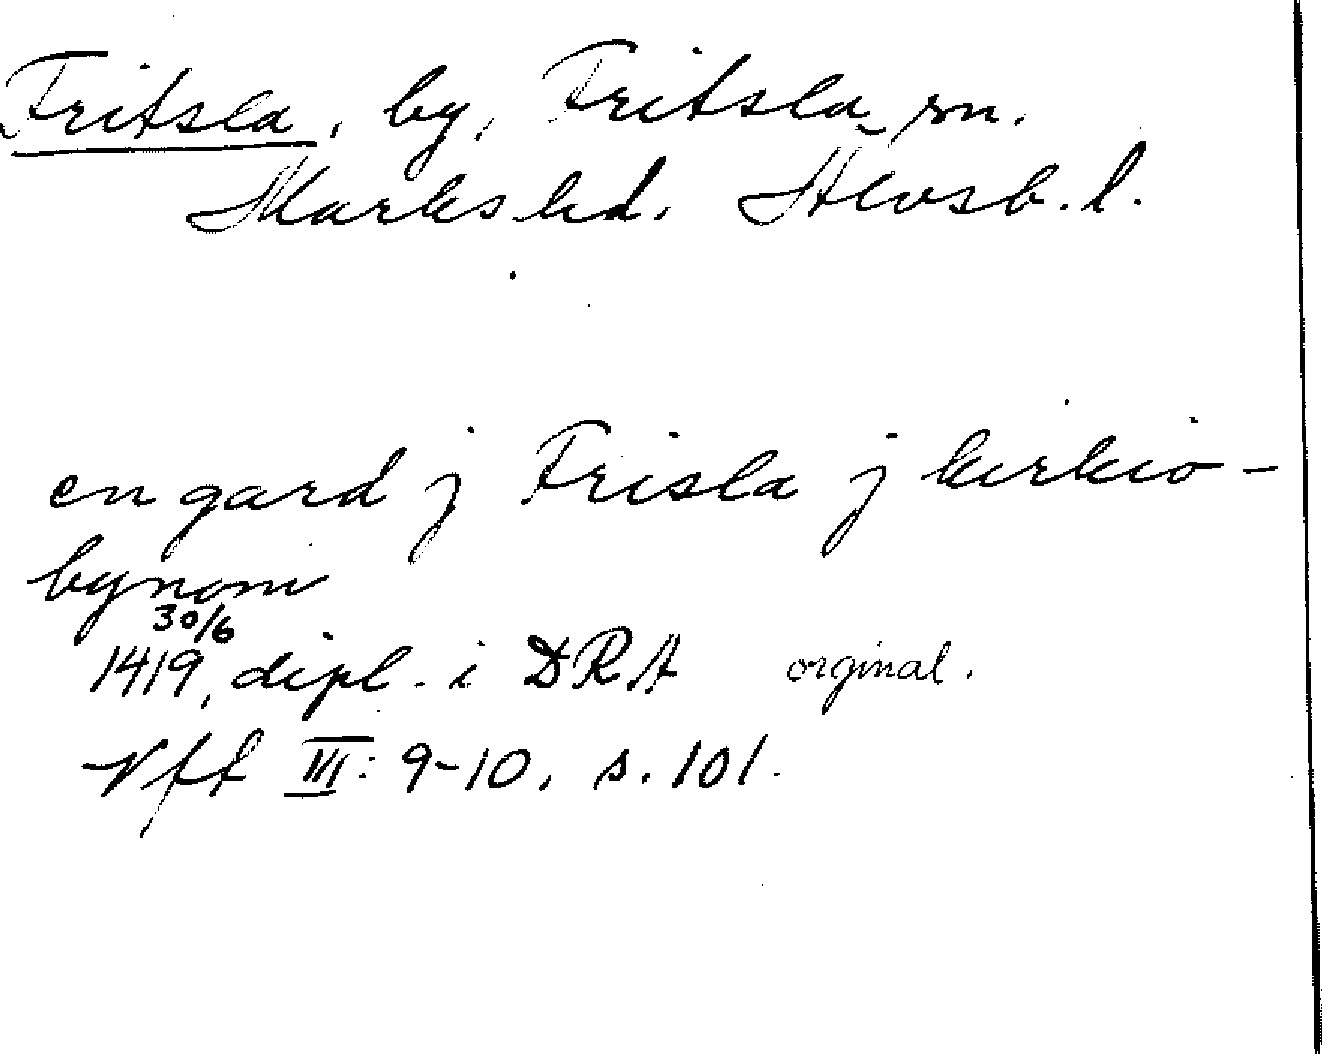 Fritsla, by, Fritsla sn.
Marks hd. Älvsb. l.
en gard j Frisla j kirkio-
bynom
30/6
1419, dipl. i DRA orginal.
Vft III: 9-10, s. 101.